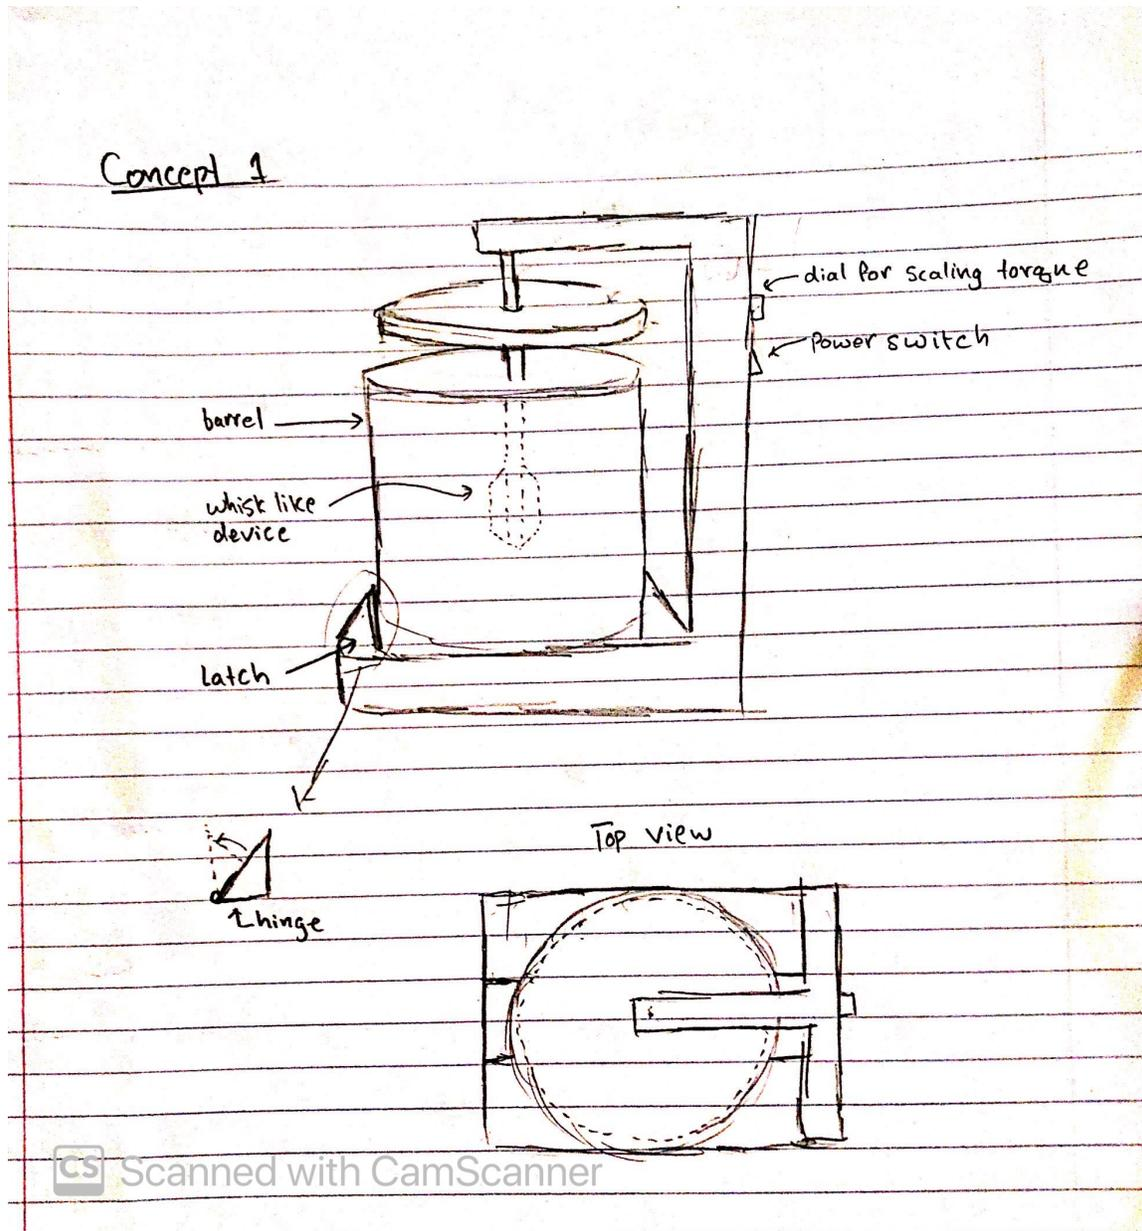 Concept 1
dial for scaling torque
Power switch
barrel
whisk like
device
latch
hinge
Top view
CS Scanned with CamScanner